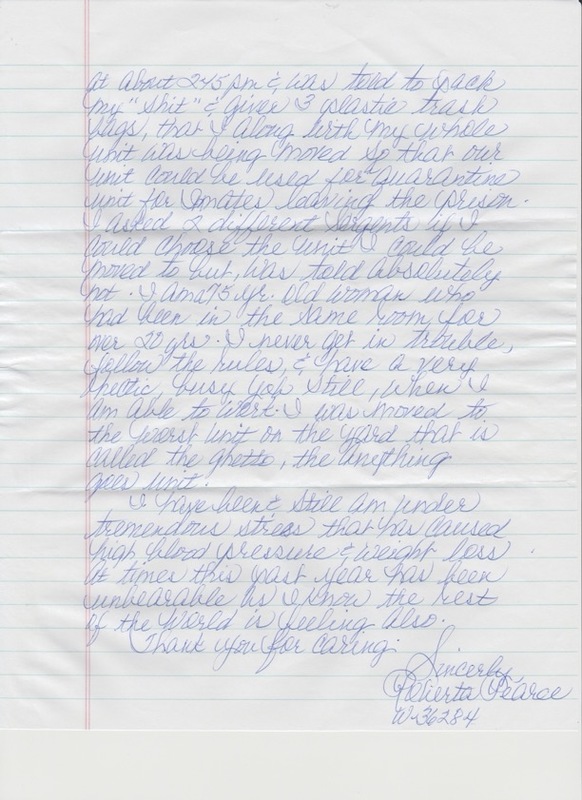 at about 245 pm & was told to pack
my "shit" & given 3 plastic trash
bags, that I along with my whole
unit was being moved so that our
unit could be used for quarantine
unit for Inmates leaving the prison.
I asked 2 different Sergents if I
could choose the unit I could be
moved to but, was told absolutely
not. I am a 75 yr. old woman who
had been in the same room for
over 20 yrs. I never get in trouble,
follow the rules, & have a very
hectic, busy job still, when I
am able to work. I was moved to
the worst unit on the yard that is
called the ghetto, the anything
goes unit.
I have been & still am under
tremendous stress that has caused
high blood pressure & weight loss.
At times this past year has been
unbearable as I know the rest
of the world is feeling also.
Thank you for caring.
Sincerly,
Roberta Pearce
W-36284